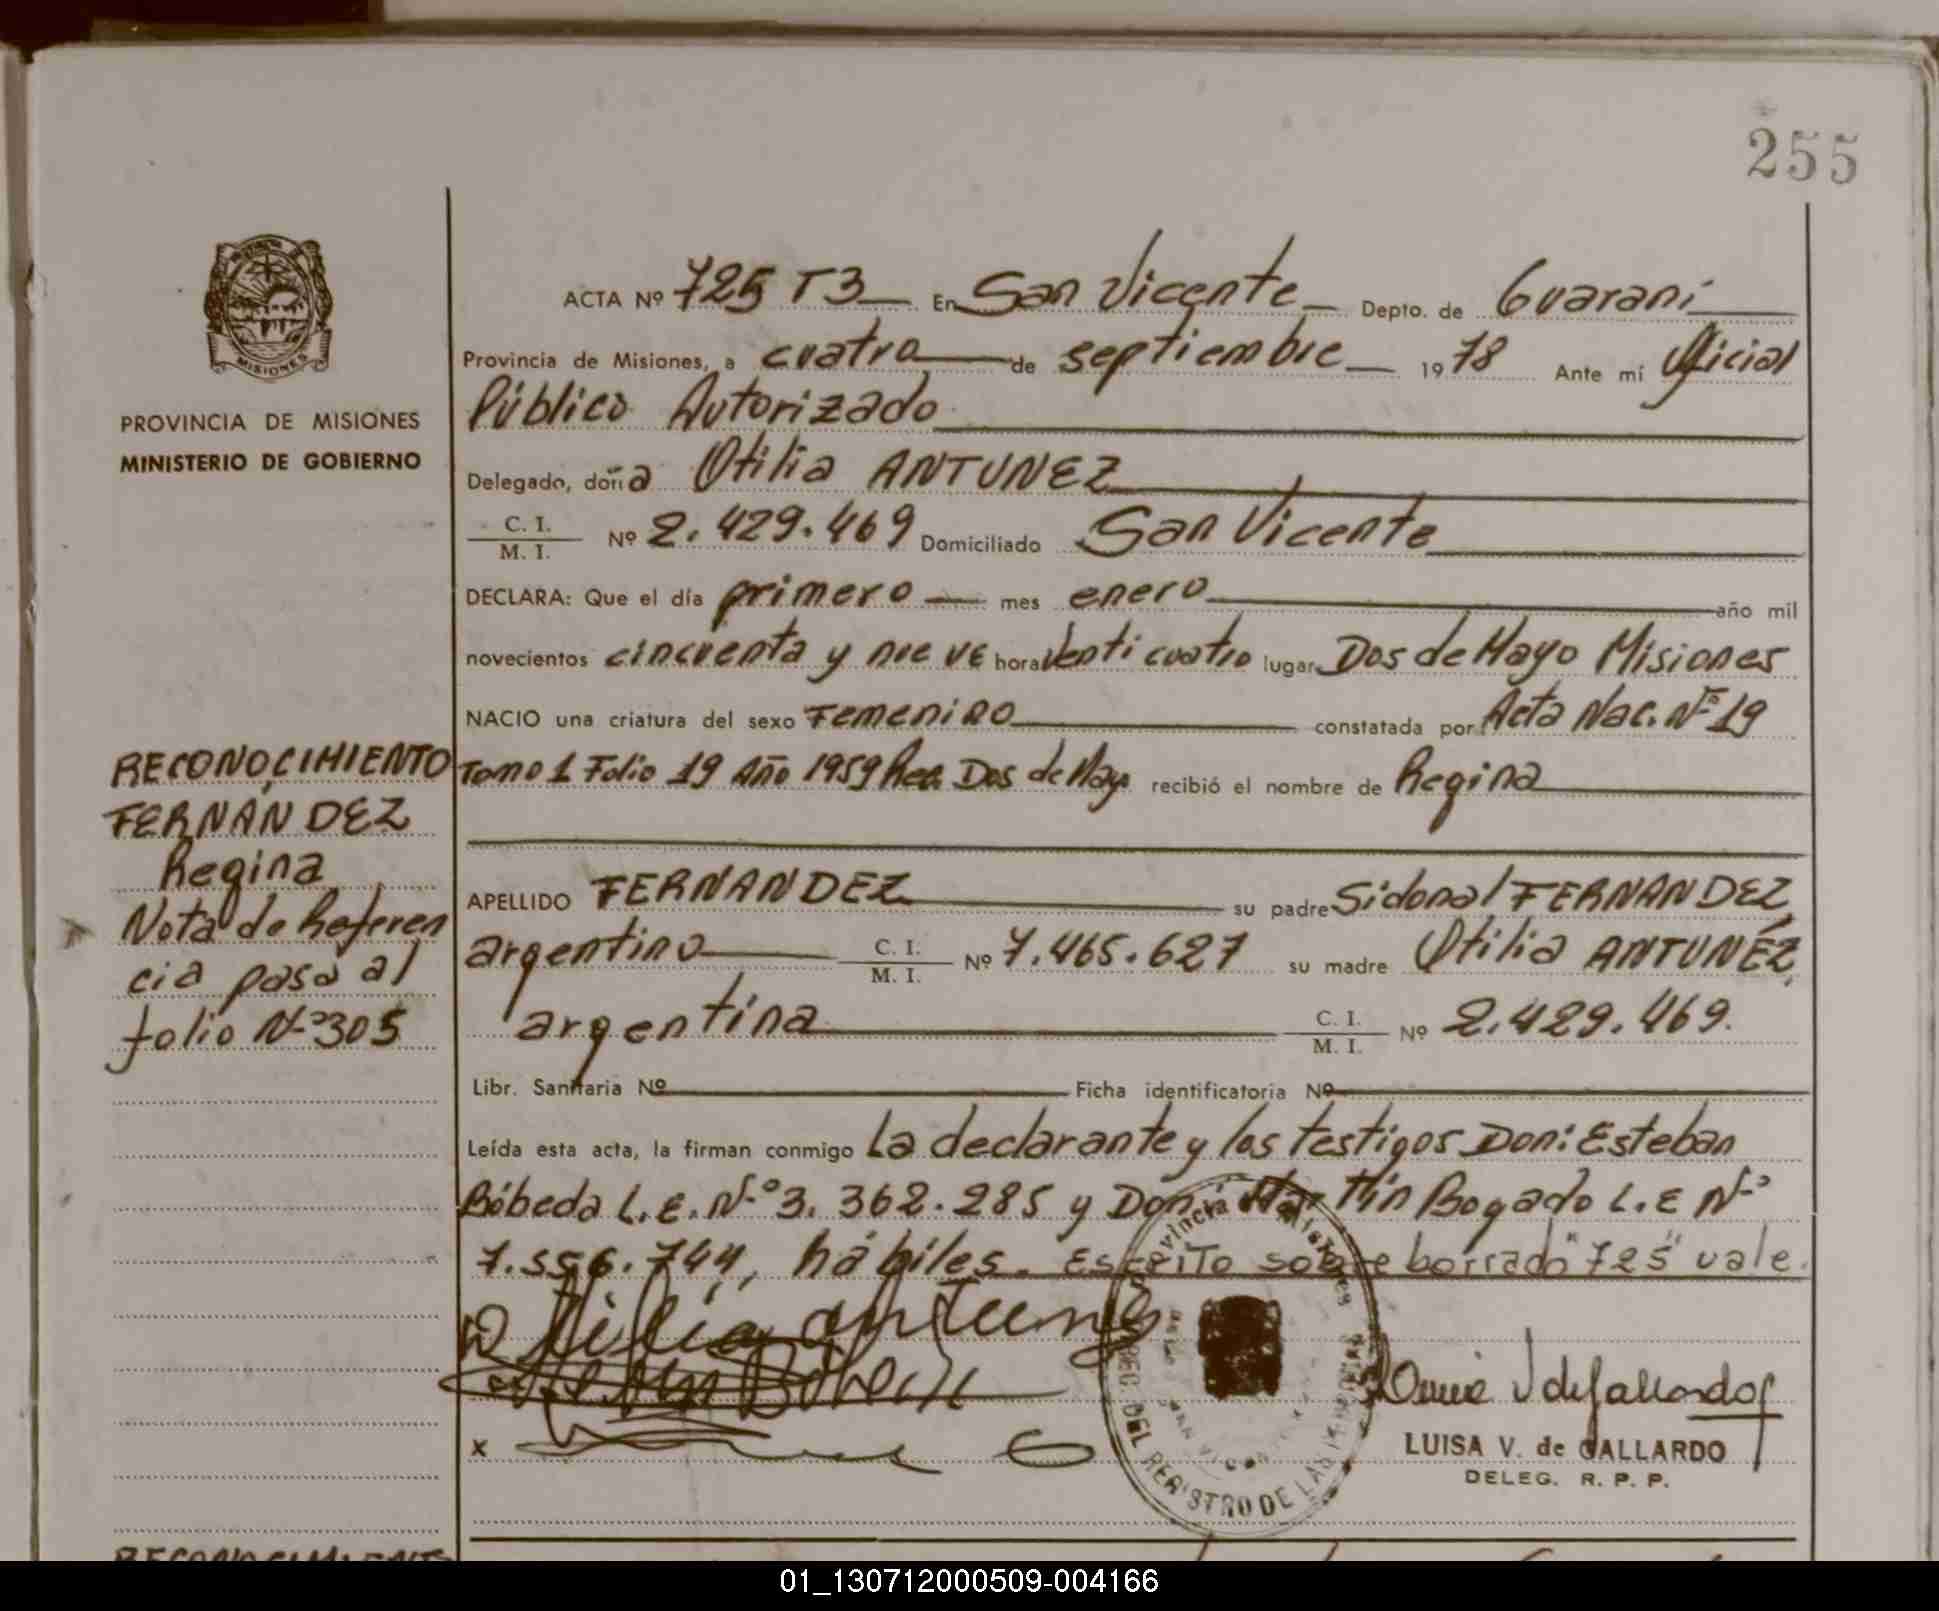 255
MISIONES
PROVINCIA DE MISIONES
MINISTERIO DE GOBIERNO
ACTA Nº 725 T3 En San Vicente Depto. de Guaraní
Provincia de Misiones, a cuatro de septiembre 1978 Ante mí Oficial
Público Autorizado
Delegado, doña Otilia ANTUNEZ
C. I.
M. I. Nº 2.429.469 Domiciliado San Vicente
DECLARA: Que el día primero mes enero año mil
novecientos cincuenta y nueve hora venti cuatro lugar Dos de Mayo Misiones
NACIO una criatura del sexo Femenino constatada por Acta Nac. Nº 19
Tomo 1 Folio 19 Año 1959 Dos de Mayo recibió el nombre de Regina
APELLIDO FERNANDEZ su padre Sidonal FERNANDEZ,
argentino C. I. M. I. Nº 7.465.627 su madre Otilia ANTUNEZ,
argentina C. I. M. I. Nº 2.429.469.
Libr. Sanitaria Nº Ficha identificatoria Nº
Leída esta acta, la firman conmigo La declarante y los testigos Don: Esteban
Bóbeda L.E. Nº 3.362.285 y Don: Martín Bogado L.E Nº
7.556.744, hábiles. Escrito sobre borrado "725" vale.
Otilia Antunez
LUISA V. de GALLARDO
DELEG. R. P. P.
RECONOCIMIENTO
FERNÁNDEZ
Regina
Nota de Referen
cia pasa al
folio Nº 305
DEL REGISTRO DE LAS
RECONOCIMIENTO
01_130712000509-004166